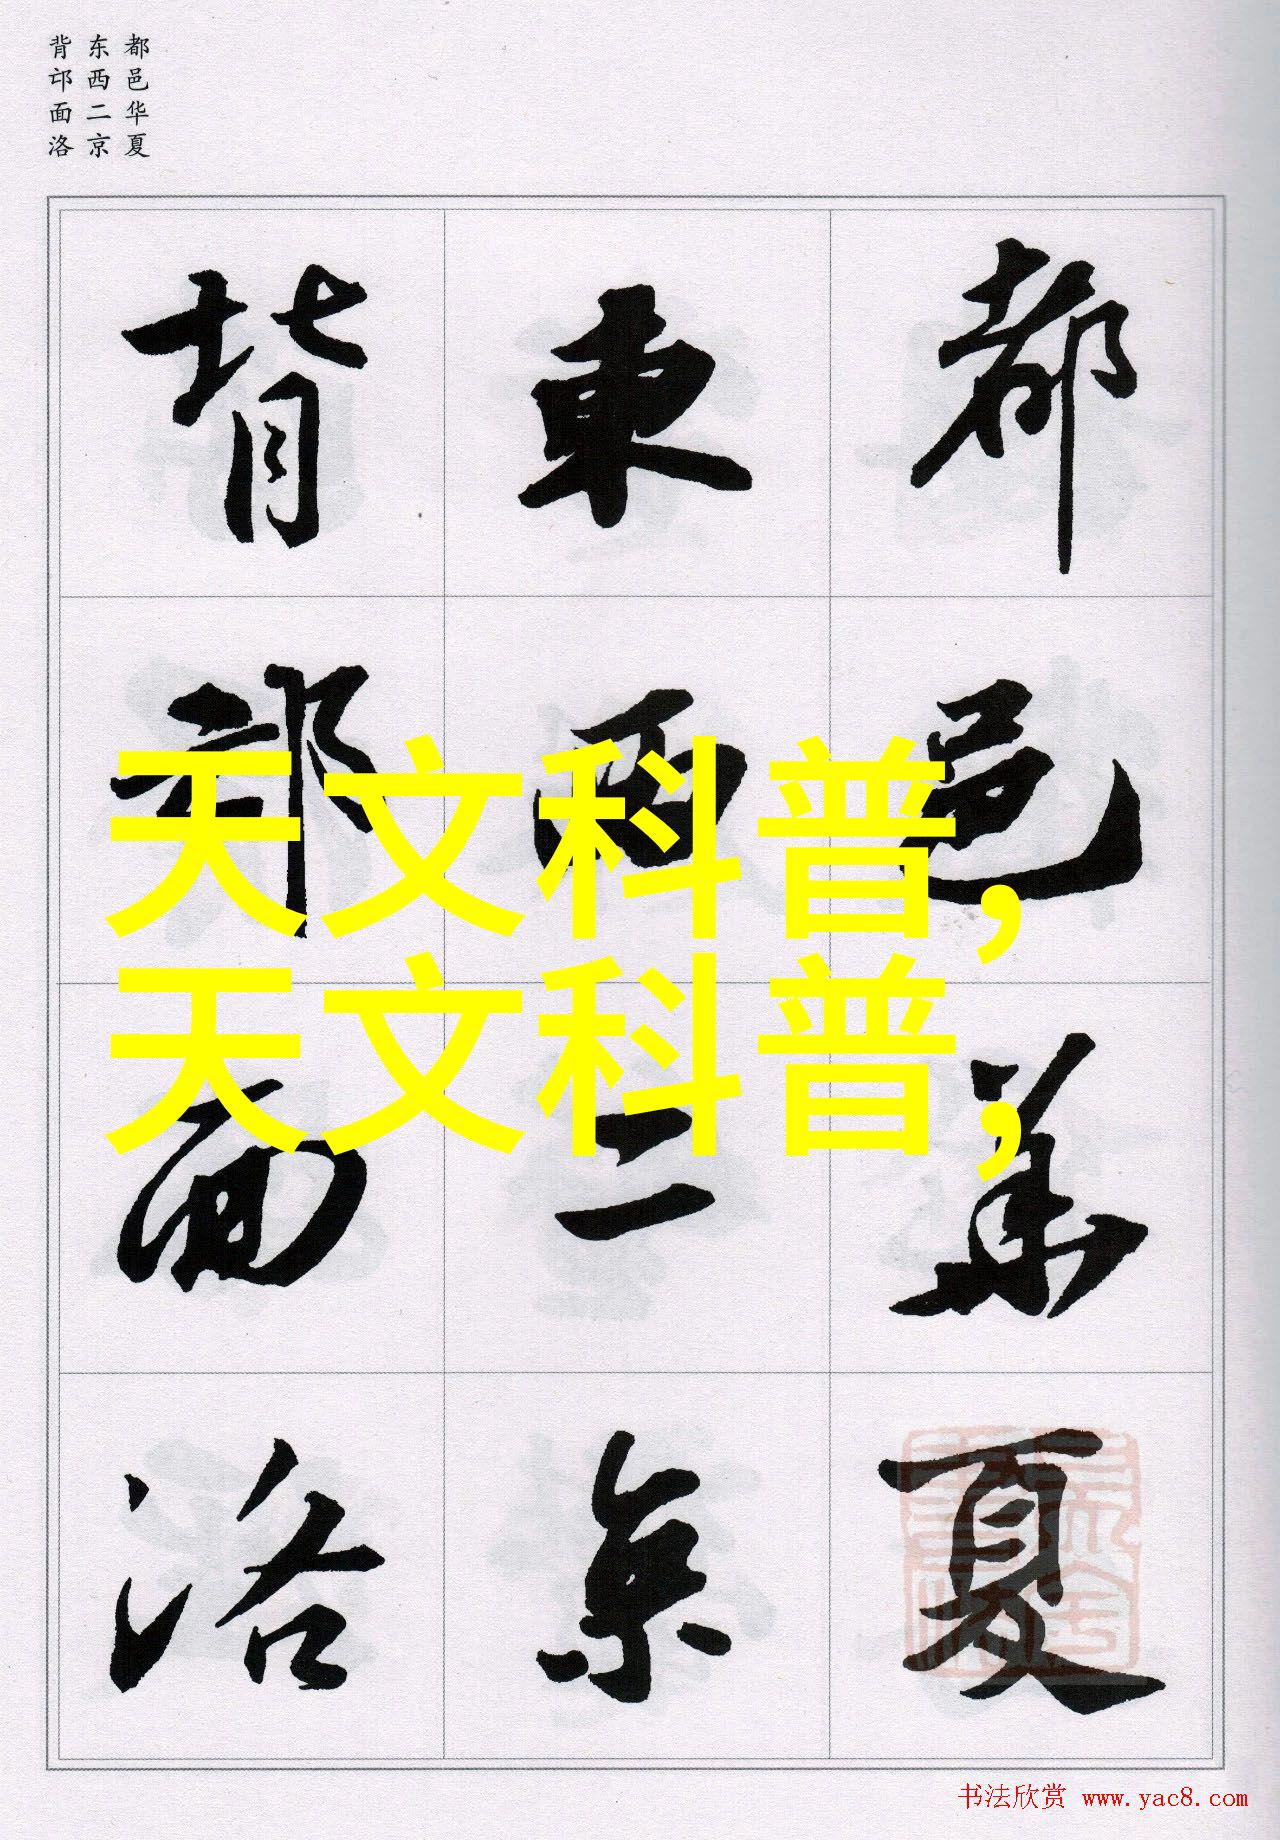 都邑华夏
东西二京
背邙面洛
都邑華夏
東西二京
背邙面洛
天文科普,
天文科普,
书法欣赏 www.yac8.com